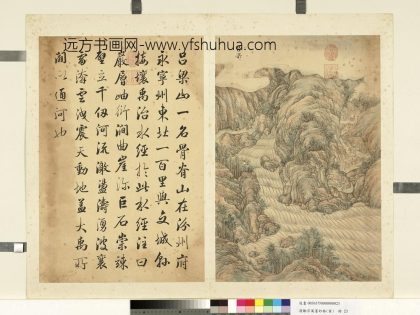 远方书画网-www.yfshuhua.com
呂梁山一名骨脊山在汾州府
永寧州東北一百里與交城縣
接壤禹治水經於此水經注曰
巖層岫衍澗曲崖深巨石崇竦
壁立千仞河流激盪濤湧波襄
雷渀雲洩震天動地蓋大禹所
闢以通河也